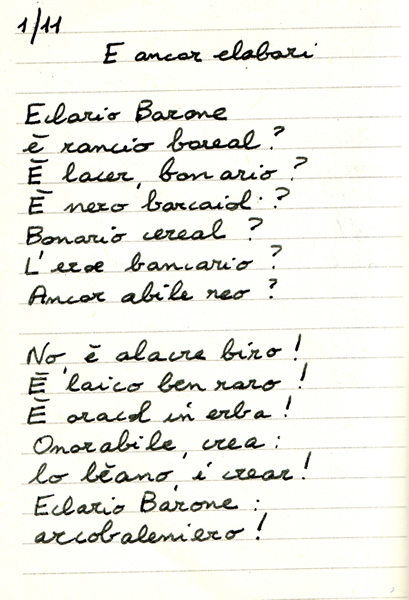 1/11
E ancor elabori
Eclario Barone
è rancio boreal?
È lacer, bon ario?
È nero barcaiol?
Bonario cereal?
L'eroe bancario?
Ancor abile neo?
No, è alacre biro!
È laico ben raro!
È oracol in erba!
Onorabile, crea:
lo bèano, i crear!
Eclario Barone:
arcobaleniero!